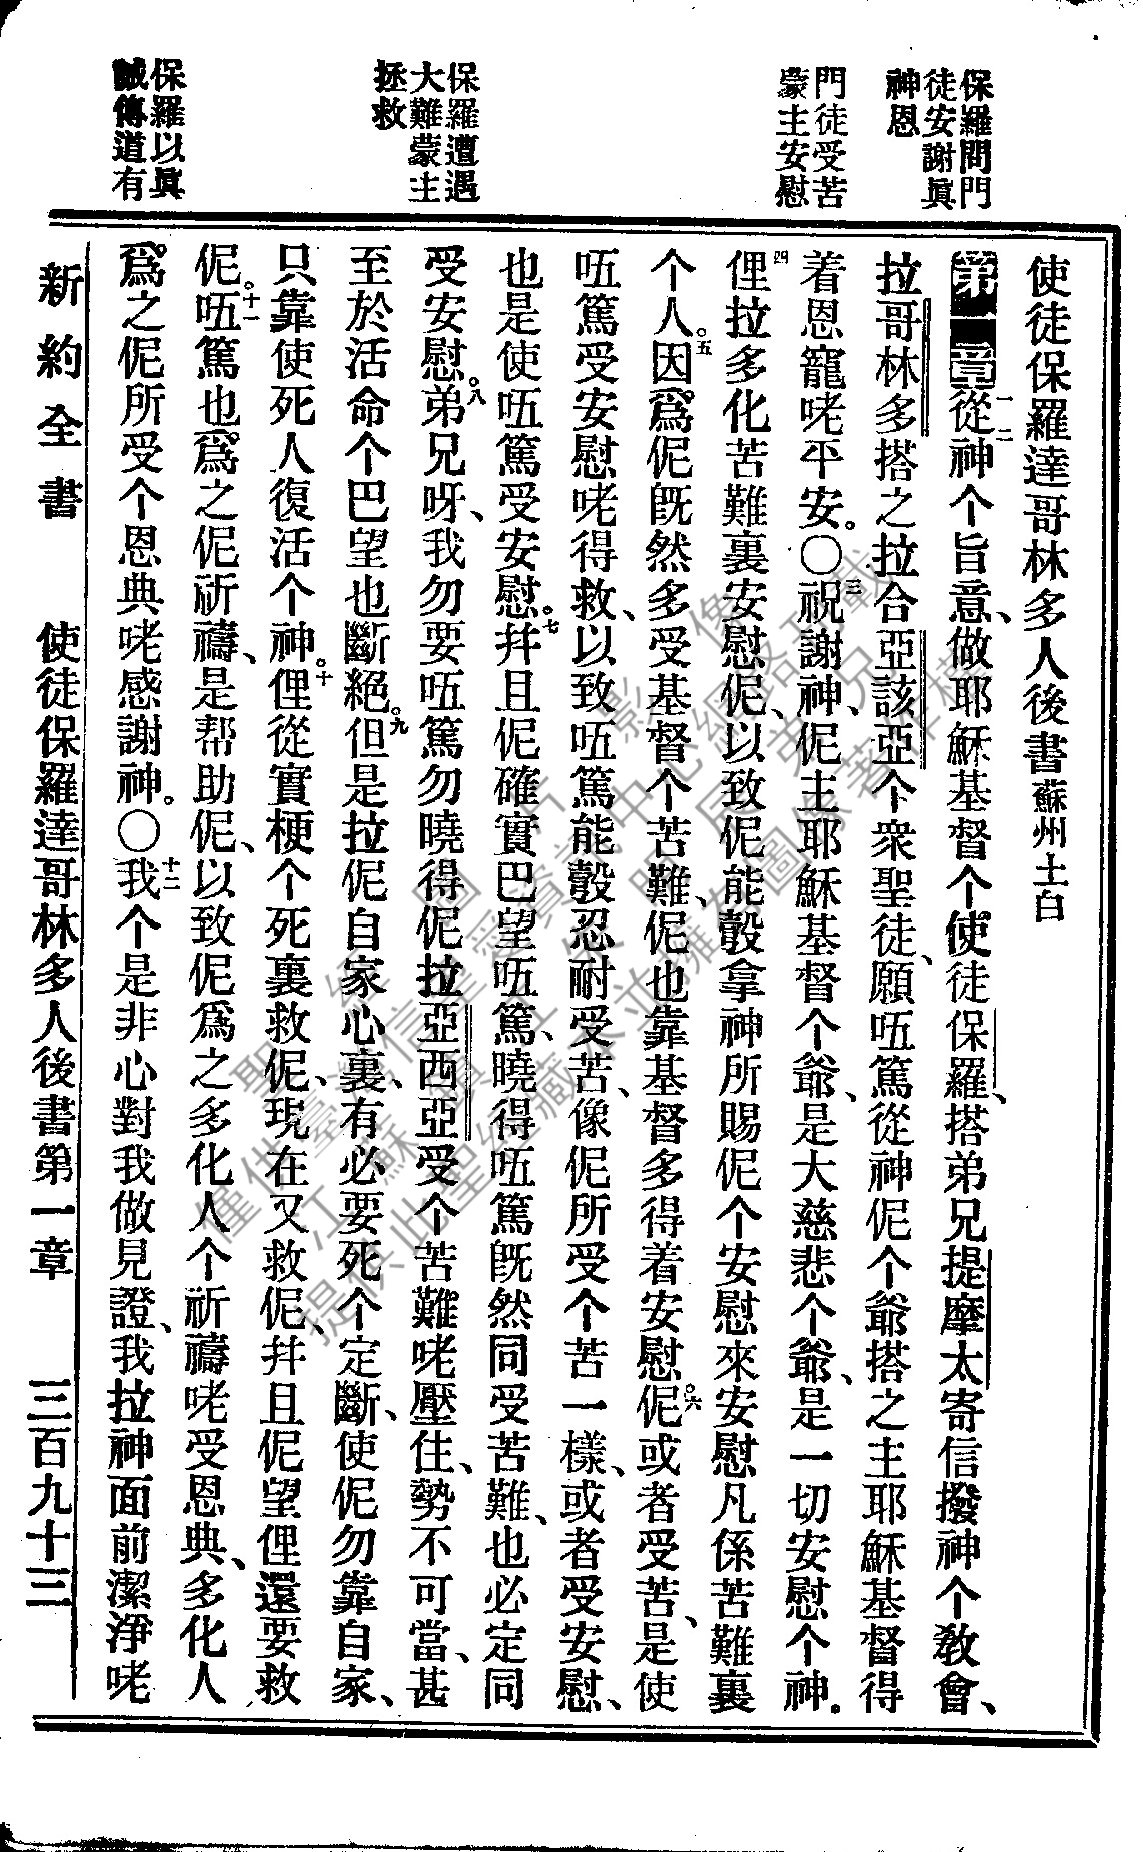 保羅問門
徒安謝眞
神恩
門徒受苦
蒙主安慰
保羅遭遇
大難蒙主
拯救
保羅以眞
誠傳道有
使徒保羅達哥林多人後書蘇州土白
第一章一二從神个旨意、做耶穌基督个使徒保羅、搭弟兄提摩太寄信撥神个敎會、
拉哥林多搭之拉合亞該亞个衆聖徒、願㕶篤從神伲个爺搭之主耶穌基督得
着恩寵咾平安。〇三祝謝神、伲主耶穌基督个爺、是大慈悲个爺、是一切安慰个神。
四俚拉多化苦難裏安慰伲、以致伲能彀拿神所賜伲个安慰來安慰凡係苦難裏
个人。五因爲伲旣然多受基督个苦難、伲也靠基督多得着安慰。六伲或者受苦、是使
㕶篤受安慰咾得救、以致㕶篤能彀忍耐受苦、像伲所受个苦一樣、或者受安慰、
也是使㕶篤受安慰。七幷且伲確實巴望㕶篤、曉得㕶篤旣然同受苦難、也必定同
受安慰。八弟兄呀、我勿要㕶篤勿曉得伲拉亞西亞受个苦難咾壓住、勢不可當、甚
至於活命个巴望也斷絕。九但是拉伲自家心裏、有必要死个定斷、使伲勿靠自家、
只靠使死人復活个神。十俚從實梗个死裏救伲、現在又救伲、幷且伲望俚還要救
伲。十一㕶篤也爲之伲祈禱、是帮助伲、以致伲爲之多化人个祈禱咾受恩典、多化人
爲之伲所受个恩典咾感謝神。〇十二我个是非心對我做見證、我拉神面前潔淨咾
新約全書　使徒保羅達哥林多人後書第一章　三百九十三
聖經圖片影像
僅供臺灣信望愛資訊中心網路取載
江蘇鎭江吳明居弟兄
提供此聖經藏本並擁有圖像著作權